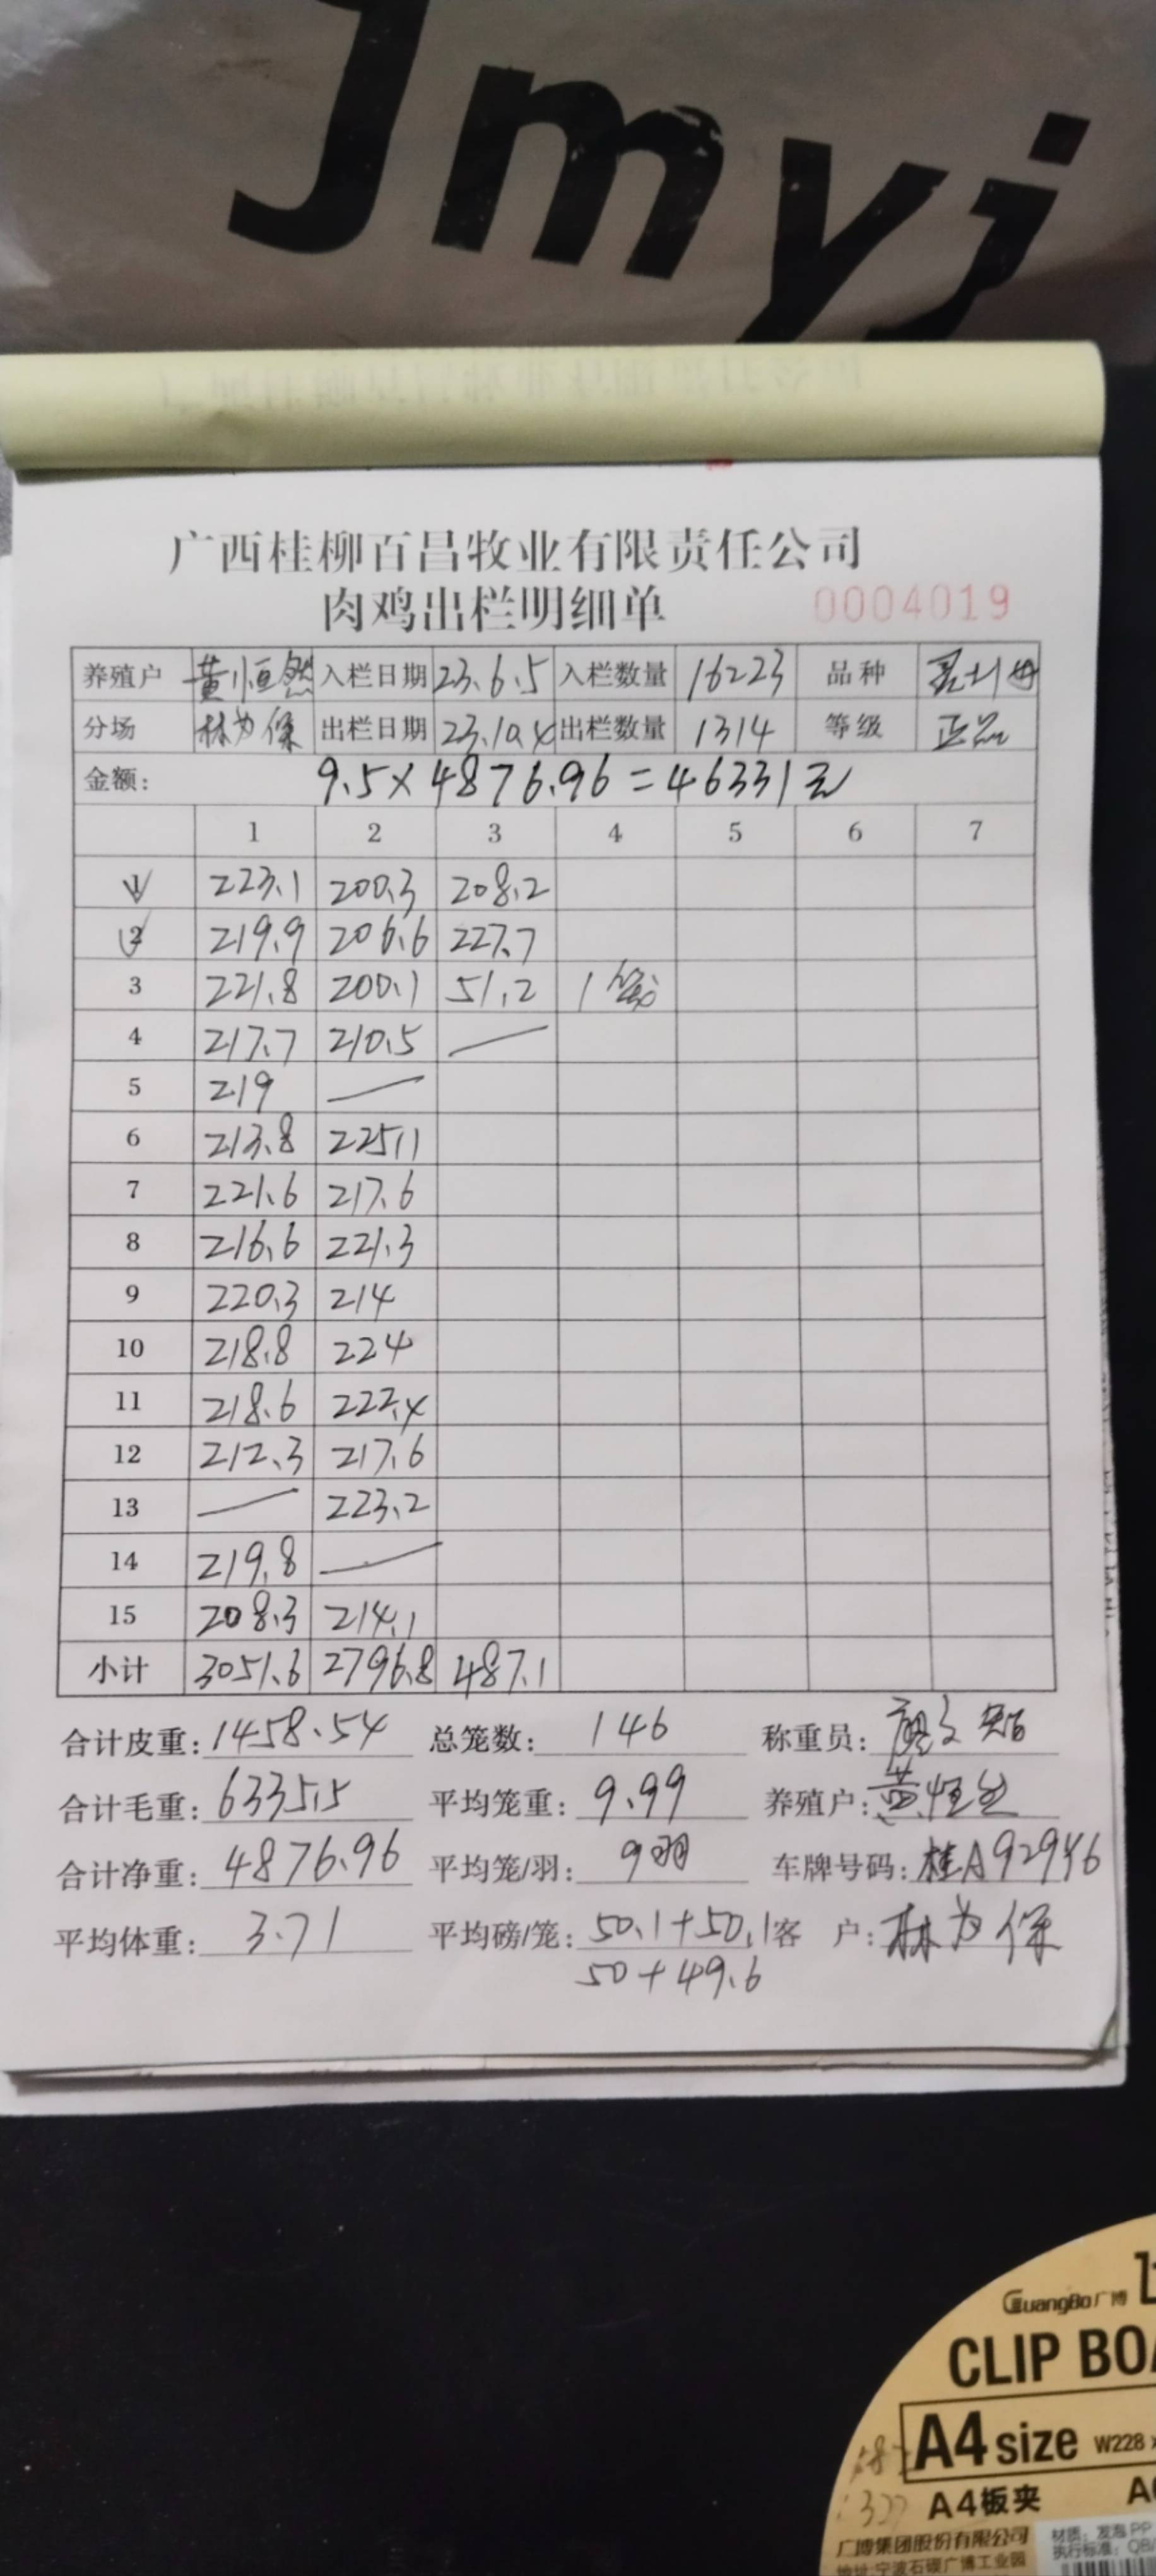 Jmyj
广西桂柳百昌牧业有限责任公司
肉鸡出栏明细单 0004019
养殖户 黄恒然 入栏日期 23.6.5 入栏数量 16223 品种
分场 林为保 出栏日期 23.10.4 出栏数量 1314 等级 正品
金额: 9.5×4876.96=46331元
1 2 3 4 5 6 7
1 223.1 200.3 208.2
2 219.9 206.6 227.7
3 221.8 200.1 51.2 1
4 217.7 210.5 —
5 219 —
6 213.8 225.1
7 221.6 217.6
8 216.6 221.3
9 220.3 214
10 218.8 224
11 218.6 222.4
12 212.3 217.6
13 — 223.2
14 219.8 —
15 208.3 214.1
小计 3051.6 2796.8 487.1
合计皮重: 1458.54 总笼数: 146 称重员:
合计毛重: 6335.5 平均笼重: 9.99 养殖户: 黄恒
合计净重: 4876.96 平均笼/羽: 9羽 车牌号码: 桂A92946
平均体重: 3.71 平均磅/笼: 50.1+50.1 客 户: 林为保
50+49.6
GuangBo广博
CLIP BOA
A4 size W228
A4板夹
327
广博集团股份有限公司
地址:宁波石碶广博工业园
材质: 发泡PP
执行标准: QB/